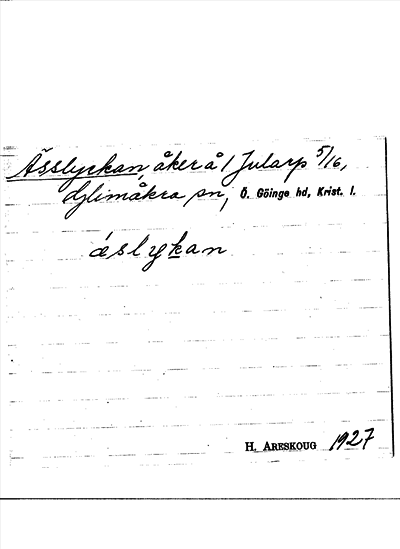 Åsslyckan, åker å 1 Jularp 5/16,
Glimåkra sn, Ö. Göinge hd, Krist. l.
áslykan
H. ARESKOUG 1927